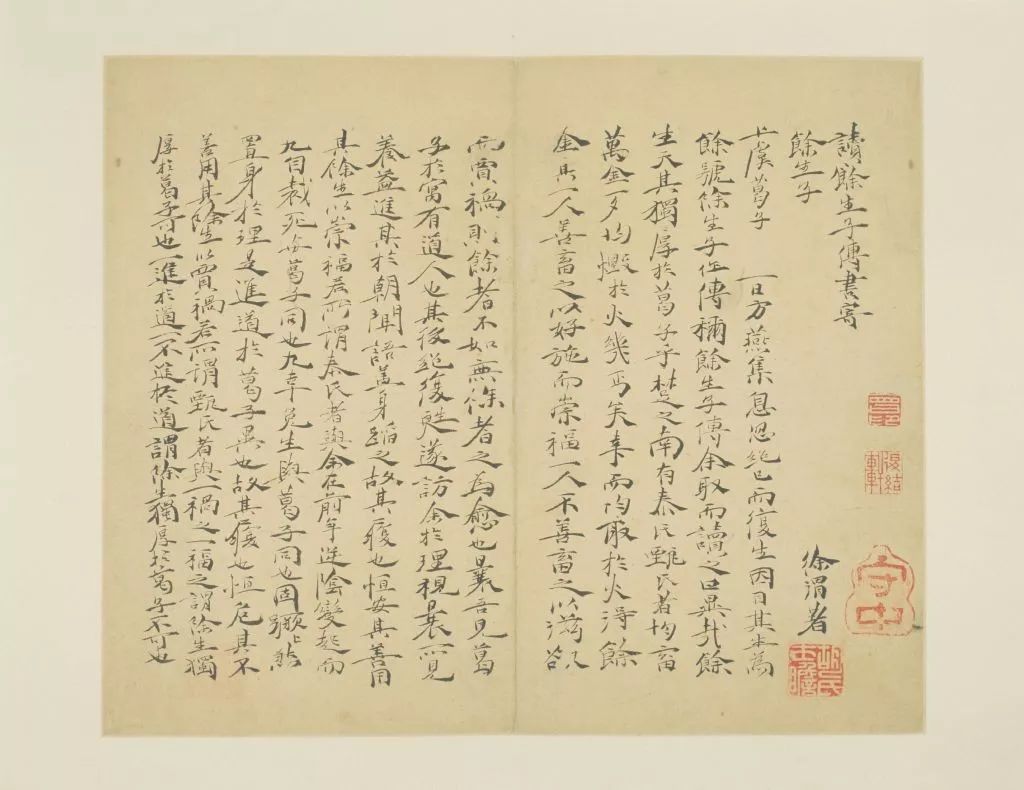 讀餘生子傳書寄
餘生子
徐渭著
守中
上虞葛子 一日方燕集息忽絕已而復生因目其生為
餘號餘生子作傳稱餘生子傳余取而讀之曰異哉餘
生天其獨厚於葛子乎楚之南有秦氏甄氏者均畜
萬金一夕均燬於火幾丐矣幸而均取於火得餘
金焉一人善畜之以好施而崇福一人不善畜之以滋欲
而賈禍則餘者不如無餘者之為愈也曩吾見葛
子於寓有道人也其後絕復甦遂訪余於理視曩所見
養益進其於朝聞語蓋身蹈之故其履也恒安其善用
其餘生以崇福若所謂秦氏者與余在前年逆陰變起而
九自裁死與葛子同也九幸免生與葛子同也
置身於理是進道於葛子異也故其履也恒危其不
善用其餘生以賈禍若所謂甄氏者與一禍之一福之謂餘生獨
厚於葛子可也一進於道一不進於道謂餘生獨厚於葛子不可也